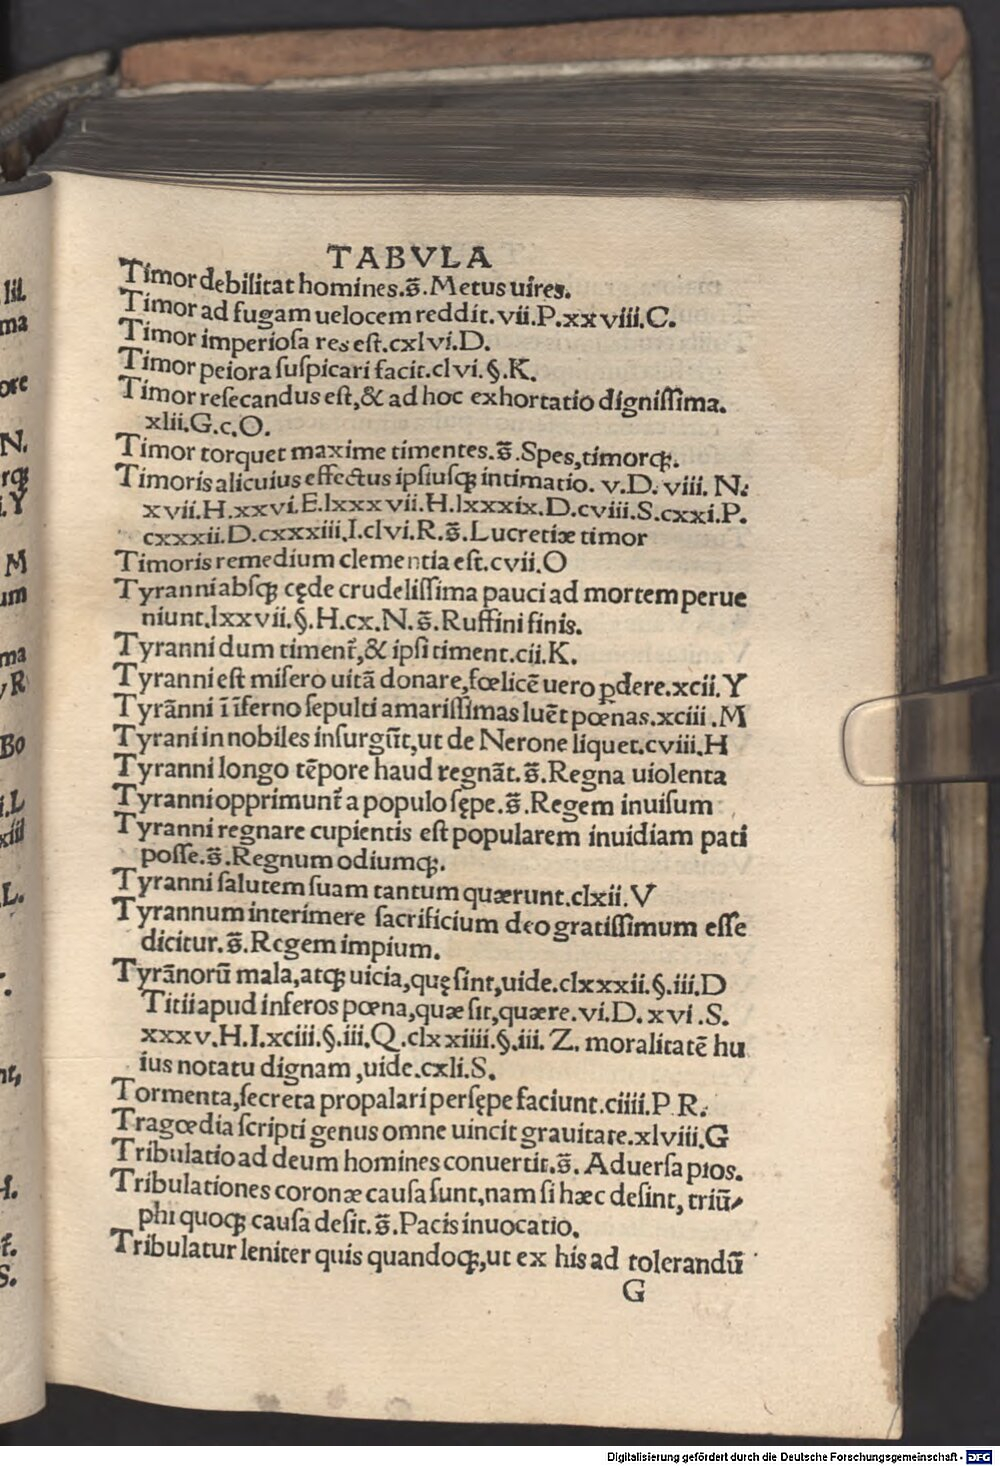 TABVLA
Timor debilitat homines.s̄.Metus uires.
Timor ad fugam uelocem reddit.vii.P.xxviii.C.
Timor imperiosa res est.cxlvi.D.
Timor peiora suspicari facit.clvi.§.K.
Timor resecandus est,& ad hoc exhortatio dignissima.
xlii.G.c.O.
Timor torquet maxime timentes.s̄.Spes,timorq;.
Timoris alicuius effectus ipsiusq; intimatio. v.D. viii. N.
xvii.H.xxvi.E.lxxxvii.H.lxxxix.D.cviii.S.cxxi.P.
cxxxii.D.cxxxiii.I.clvi.R.s̄.Lucretiæ timor
Timoris remedium clementia est.cvii.O
Tyranni absq; cęde crudelissima pauci ad mortem perue
niunt.lxxvii.§.H.cx.N.s̄.Ruffini finis.
Tyranni dum timent̃,& ipsi timent.cii.K.
Tyranni est misero uitā donare,fœlicē uero ꝑdere.xcii.Y
Tyrāni ī īferno sepulti amarissimas luēt pœnas.xciii.M
Tyrani in nobiles insurgūt,ut de Nerone liquet.cviii.H
Tyranni longo tēpore haud regnāt.s̄.Regna uiolenta
Tyranni opprimunt̃ a populo sępe.s̄.Regem inuisum
Tyranni regnare cupientis est popularem inuidiam pati
posse.s̄.Regnum odiumq;.
Tyranni salutem suam tantum quærunt.clxii.V
Tyrannum interimere sacrificium deo gratissimum esse
dicitur.s̄.Regem impium.
Tyrānorū mala,atq; uicia,quę sint,uide.clxxxii.§.iii.D
Titii apud inferos pœna,quæ sit,quære.vi.D.xvi.S.
xxxv.H.I.xciii.§.iii.Q.clxxiiii.§.iii. Z. moralitatē hu
ius notatu dignam,uide.cxli.S.
Tormenta,secreta propalari persępe faciunt.ciiii.P R.
Tragœdia scripti genus omne uincit grauitate.xlviii.G
Tribulatio ad deum homines conuertit.s̄. Aduersa pios.
Tribulationes coronæ causa sunt,nam si hæc desint, triū-
phi quoq; causa desit.s̄.Pacis inuocatio.
Tribulatur leniter quis quandoq;,ut ex his ad tolerandū
G
Digitalisierung gefördert durch die Deutsche Forschungsgemeinschaft - DFG